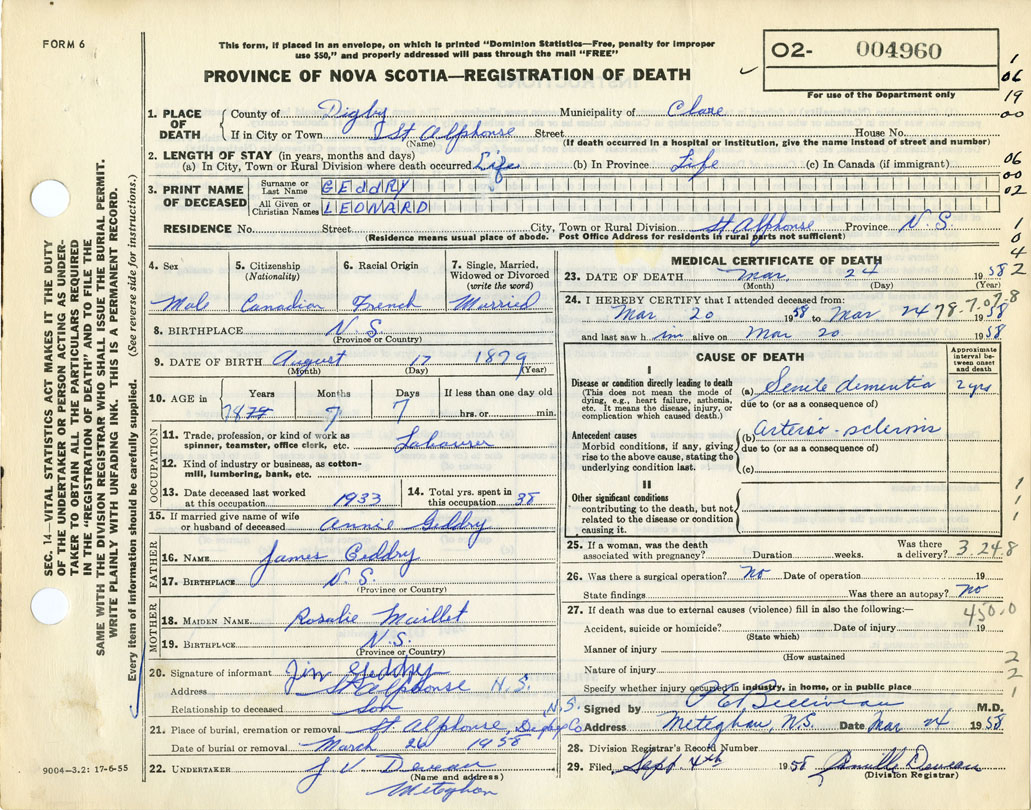 FORM 6
This form, if placed in an envelope, on which is printed "Dominion Statistics—Free, penalty for improper
use $50," and properly addressed will pass through the mail "FREE"
PROVINCE OF NOVA SCOTIA—REGISTRATION OF DEATH
O2- 004960
For use of the Department only
1
06
19
00
06
00
02
1
0
4
2
SEC. 14—VITAL STATISTICS ACT MAKES IT THE DUTY
OF THE UNDERTAKER OR PERSON ACTING AS UNDER-
TAKER TO OBTAIN ALL THE PARTICULARS REQUIRED
IN THE "REGISTRATION OF DEATH" AND TO FILE THE
SAME WITH THE DIVISION REGISTRAR WHO SHALL ISSUE THE BURIAL PERMIT.
WRITE PLAINLY WITH UNFADING INK. THIS IS A PERMANENT RECORD.
Every item of information should be carefully supplied. (See reverse side for instructions.)
1. PLACE OF DEATH
County of Digby Municipality of Clare
If in City or Town St Alphonse Street House No.
(Name) (If death occurred in a hospital or institution, give the name instead of street and number)
2. LENGTH OF STAY (in years, months and days)
(a) In City, Town or Rural Division where death occurred Life (b) In Province Life (c) In Canada (if immigrant)
3. PRINT NAME OF DECEASED
Surname or Last Name GEddRY
All Given or Christian Names LEOWARD
RESIDENCE No. Street City, Town or Rural Division St Alphonse Province N S.
(Residence means usual place of abode. Post Office Address for residents in rural parts not sufficient)
4. Sex 5. Citizenship (Nationality) 6. Racial Origin 7. Single, Married, Widowed or Divorced (write the word)
Male Canadian French Married
8. BIRTHPLACE N S.
(Province or Country)
9. DATE OF BIRTH August 17 1879
(Month) (Day) (Year)
10. AGE in Years Months Days If less than one day old
78 7 7 hrs. or min.
OCCUPATION
11. Trade, profession, or kind of work as
spinner, teamster, office clerk, etc. Labourer
12. Kind of industry or business, as cotton-
mill, lumbering, bank, etc.
13. Date deceased last worked
at this occupation 1933
14. Total yrs. spent in
this occupation 38
15. If married give name of wife
or husband of deceased Annie Geddry
FATHER
16. NAME James Geddry
17. BIRTHPLACE N S.
(Province or Country)
MOTHER
18. MAIDEN NAME Rosalie Maillet
19. BIRTHPLACE N.S.
(Province or Country)
20. Signature of informant Jim Geddry
Address St Alphonse N.S.
Relationship to deceased Son
21. Place of burial, cremation or removal St Alphonse, Digby Co N.S.
Date of burial or removal March 26 1958
22. UNDERTAKER J V. Deveau
(Name and address)
Meteghan
9004—3.2: 17-6-55
MEDICAL CERTIFICATE OF DEATH
23. DATE OF DEATH Mar 24 1958
(Month) (Day) (Year)
24. I HEREBY CERTIFY that I attended deceased from:
Mar 20 1958 to Mar 24 1958
78.7.07-8
and last saw h im alive on Mar 20 1958
CAUSE OF DEATH
Approximate interval between onset and death
I
Disease or condition directly leading to death
(This does not mean the mode of
dying, e.g., heart failure, asthenia,
etc. It means the disease, injury, or
complication which caused death.)
(a) Senile dementia 2 yrs
due to (or as a consequence of)
Antecedent causes
Morbid conditions, if any, giving
rise to the above cause, stating the
underlying condition last.
(b) Arterio-sclerosis
due to (or as a consequence of)
(c)
II
Other significant conditions
contributing to the death, but not
related to the disease or condition
causing it.
1
1
1
25. If a woman, was the death
associated with pregnancy? Duration weeks. Was there a delivery?
3.248
26. Was there a surgical operation? No Date of operation 19
State findings Was there an autopsy? No
27. If death was due to external causes (violence) fill in also the following:—
450.0
Accident, suicide or homicide? Date of injury 19
(State which)
Manner of injury
(How sustained
Nature of injury
Specify whether injury occurred in industry, in home, or in public place
2
2
1
Signed by P E Belliveau M.D.
Address Meteghan, N.S. Date Mar 24 1958
28. Division Registrar's Record Number
29. Filed Sept. 4th 1958 Deveau
(Division Registrar)